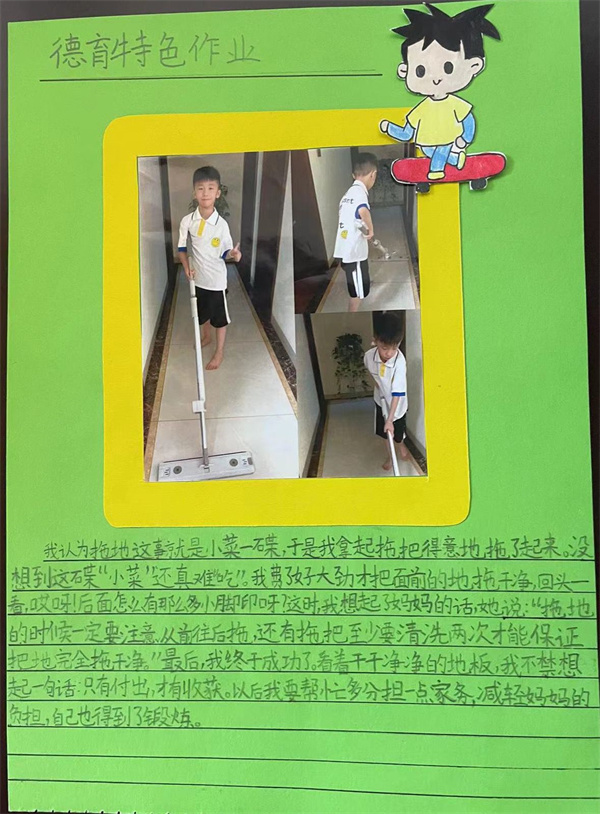 德育特色作业
我认为拖地这事就是小菜一碟,于是我拿起拖把得意地拖了起来。没
想到这碟“小菜”还真难“吃”。我费了好大劲才把面前的地拖干净,回头一
看,哎呀!后面怎么有那么多小脚印呀?这时,我想起了妈妈的话,她说:“拖地
的时候一定要注意从前往后拖,还有拖把至少要清洗两次才能保证
把地完全拖干净。”最后,我终于成功了。看着干干净净的地板,我不禁想
起一句话:只有付出,才有收获。以后我要帮忙多分担一点家务,减轻妈妈的
负担,自己也得到了锻炼。